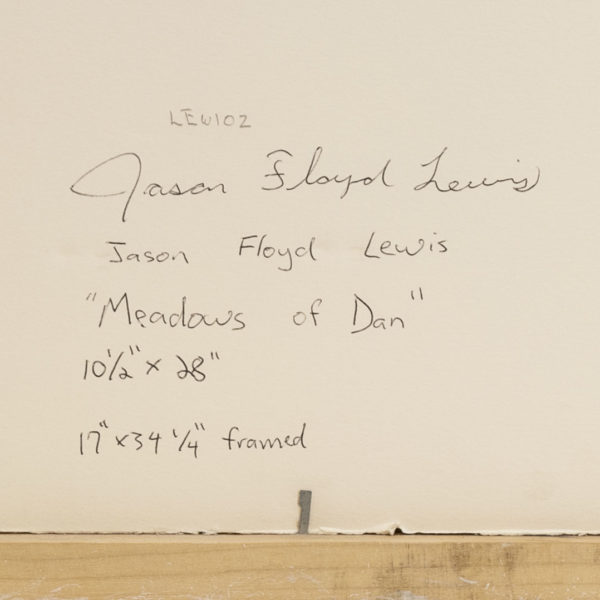 LEW102
Jason Floyd Lewis
Jason Floyd Lewis
"Meadows of Dan"
10½" x 28"
17" x 34 ¼" framed